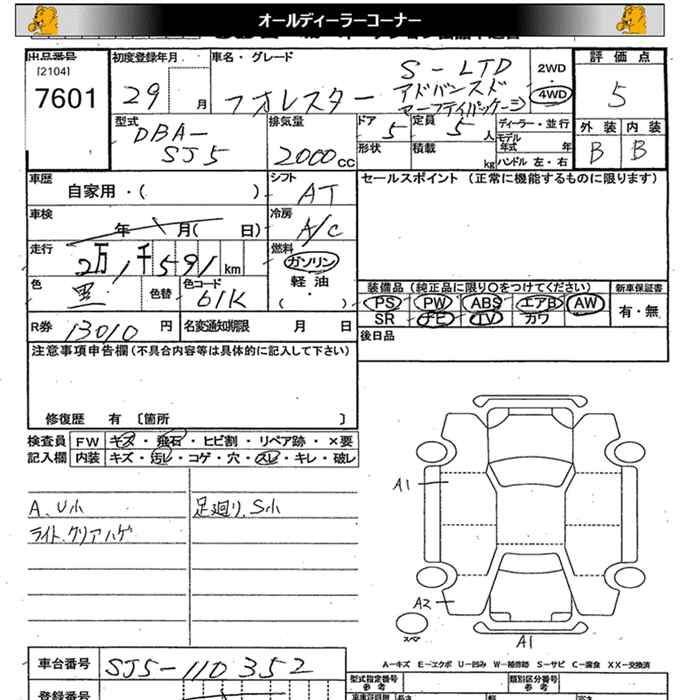 オールディーラーコーナー
出品番号
[2104]
7601
初度登録年月
29 月
車名・グレード
フォレスター
S-LTD
アドバンスド
セーフティパッケージ
2WD
4WD
評価点
5
外装 内装
B B
型式
DBA-
SJ5
排気量
2000cc
ドア
5
定員
5人
形状
積載
kg
ディーラー・並行
モデル
年式 年
ハンドル 左・右
車歴
自家用・( )
シフト
AT
セールスポイント (正常に機能するものに限ります)
車検
年 月( 日)
冷房
A/C
走行
2万1千591km
燃料
ガソリン
軽油
・
( )
色
黒
色替
色コード
61K
装備品(純正品に限り○をつけてください)
PS PW ABS エアB AW
SR ナビ TV カワ
新車保証書
有・無
R券 13010 円
名変通知期限 月 日
後日品
注意事項申告欄(不具合内容等は具体的に記入して下さい)
修復歴 有 〔箇所 〕
検査員
記入欄
FW キズ・飛石・ヒビ割・リペア跡・×要
内装 キズ・汚レ・コゲ・穴・スレ・キレ・破レ
A、U小
ライト、クリアハゲ
足廻り、S小
A1
A2
スペア
A1
A-キズ E-エクボ U-凹み W-補修跡 S-サビ C-腐食 XX-交換済
車台番号
SJ5-110352
登録番号
型式指定番号
参考
類別区分番号
参考
長さ
幅
高さ